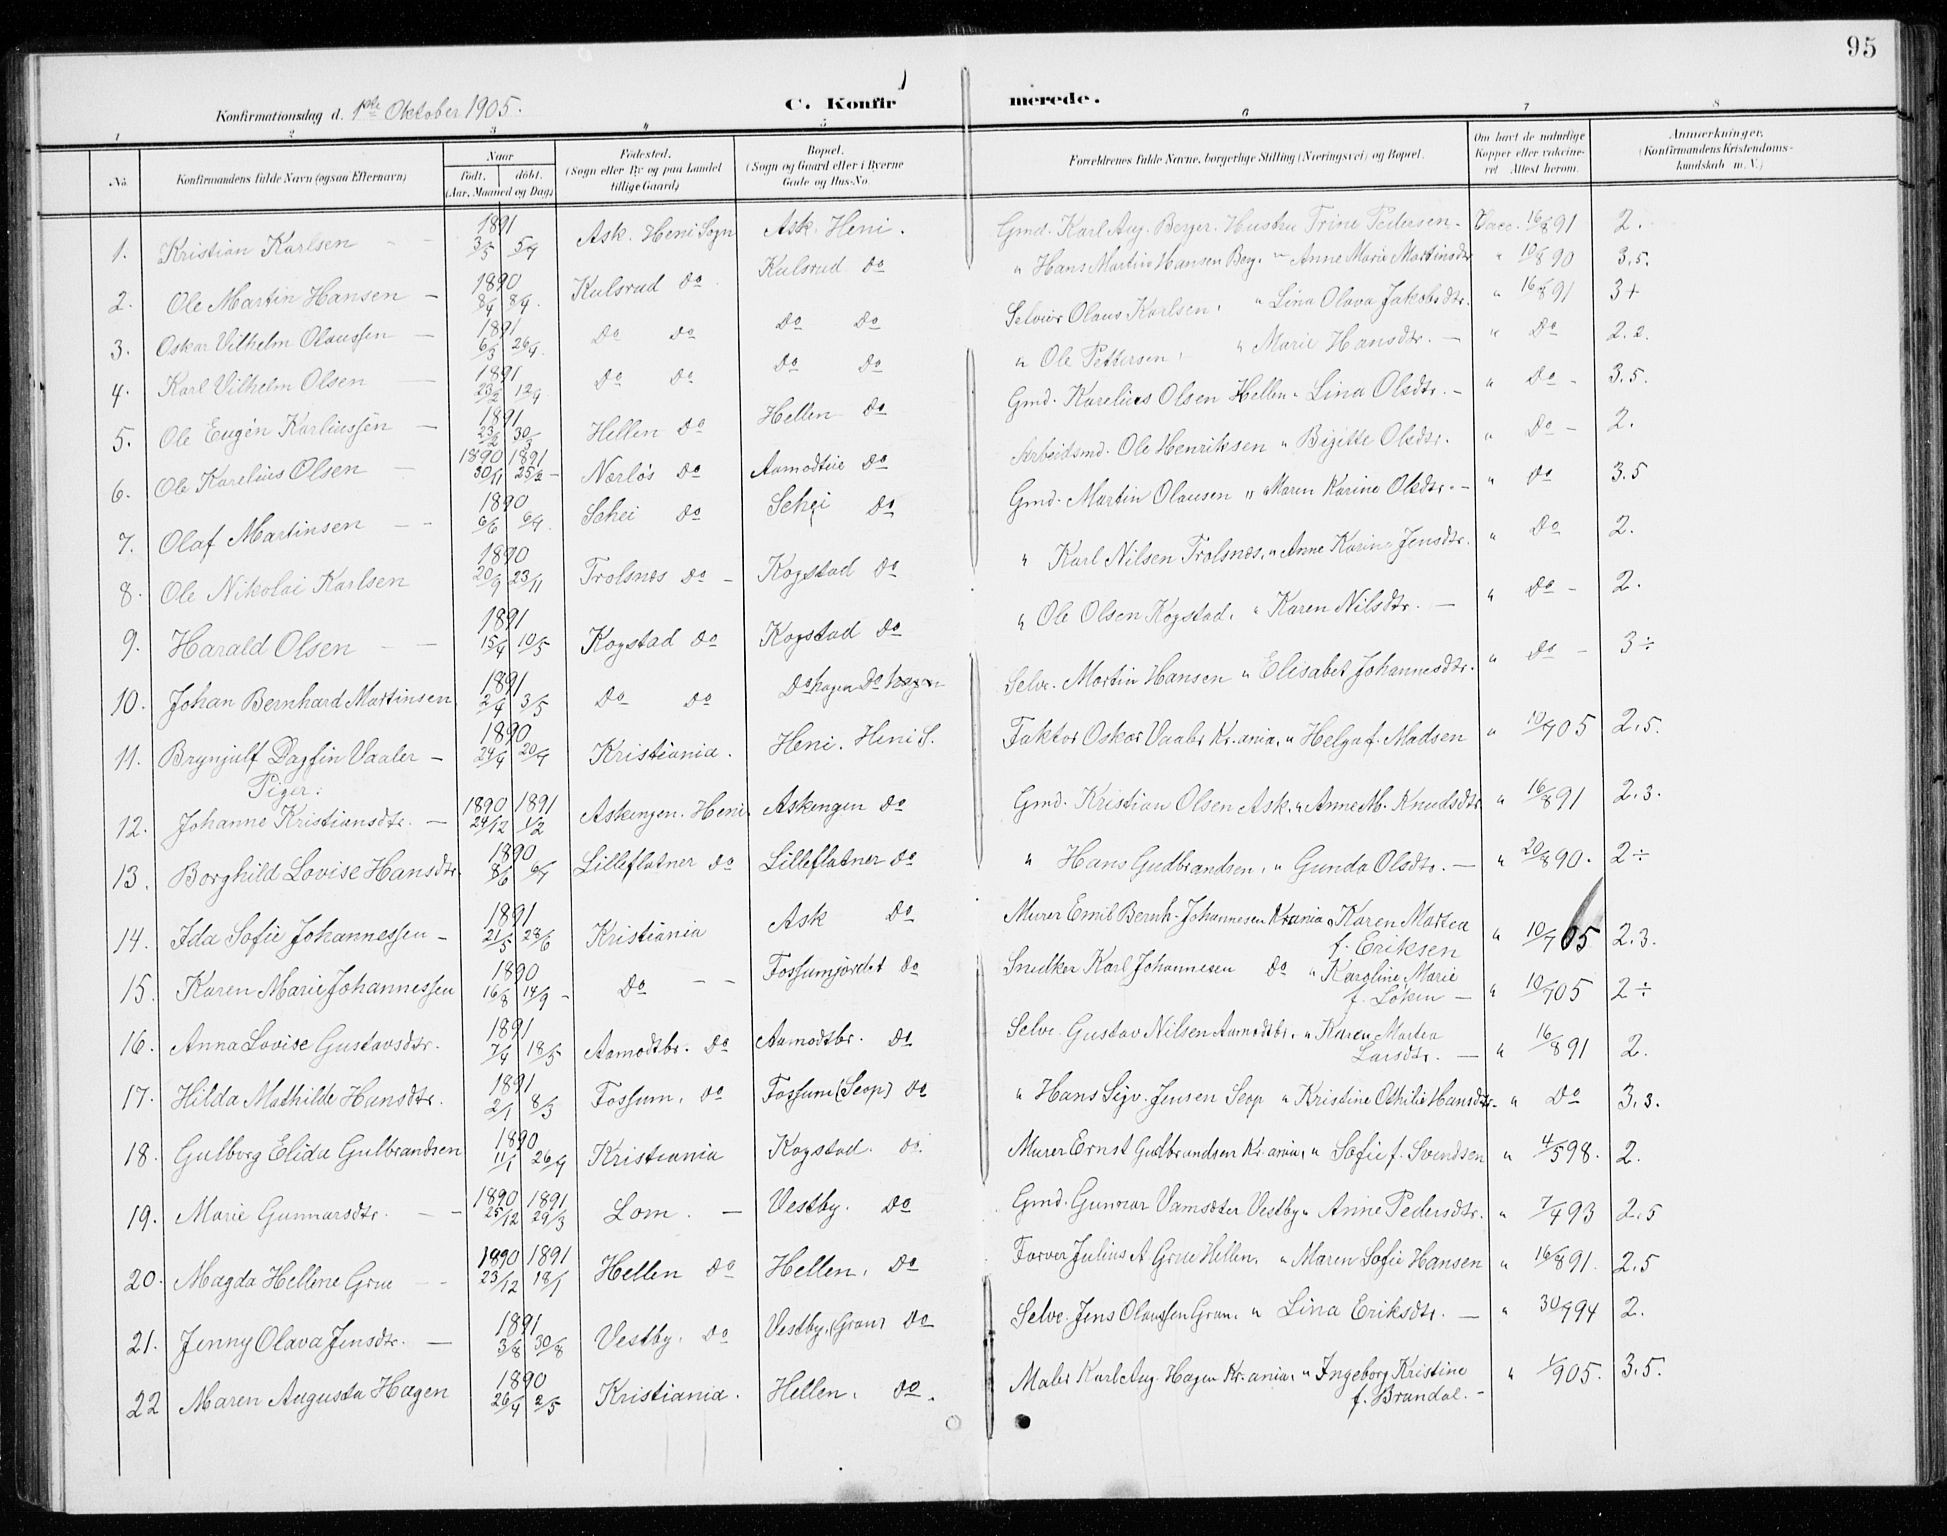 95
Konfirmationsdag d. 1ste Oktober 1905.
C. Konfirmerede.
1 2 3 4 5 6 7 8
No
Konfirmandens fulde Navn (ogsaa Efternavn)
Naar
født. døbt.
(Aar, Maaned og Dag)
Fødested.
(Sogn eller By og paa Landet
tillige Gaard)
Bopæl.
(Sogn og Gaard eller i Byerne
Gade og Hus-No.
Forældrenes fulde Navne, borgerlige Stilling (Næringsvei) og Bopæl.
Om havt de naturlige
Kopper eller vakcine-
ret. Attest herom.
Anmærkninger.
(Konfirmandens Kristendoms-
kundskab m. V.)
1. Kristian Karlsen - - 1891 3/5 5/9 Ask. Heni Sogn Ask. Heni. Gmd. Karl Aug. Berger. Hustru Trine Pedersen. Vacc. 16/8 91 2.
2. Ole Martin Hansen - 1890 8/4 8/9. Kulsrud Do Kulsrud Do " Hans Martin Hansen Berg. " Anne Marie Martinsdtr " 10/8 90 3.5.
3. Oskar Vilhelm Olaussen - 1891 6/3 26/4. Do Do Do Do Selveier Olaus Karlsen, " Lina Olava Jakobsdtr. " 16/8 91 3+
4. Karl Vilhelm Olsen - 1891 23/2 12/4 Do Do Do Do " Ole Pettersen, " Marie Hansdtr. - " Do 2.2.
5. Ole Eugén Karliussen - 1891 23/2 30/3 Hellen Do Hellen Do Gmd. Karelius Olsen Hellen " Lina Olsdtr. - " Do - 3.5.
6. Ole Karelius Olsen - 1890 30/11 1891 25/2 - Nærløs Do Aamodteie Do Arbeidsmd. Ole Henriksen " Bigitte Olsdtr. " Do - 2.
7. Olaf Martinsen - - 1890 6/6 6/7. Schei Do Schei Do Gmd. Martin Olausen " Maren Karine Olsdtr. - " Do 3.5
8. Ole Nikolai Karlsen 1890 20/9 23/11 Trolsnæs Do - Kogstad Do " Karl Nilsen Trolsnæs. " Anne Karine Jensdtr. " Do 2.
9. Harald Olsen - - 1891 15/4 10/5 Kogstad Do Kogstad Do " Ole Olsen Kogstad, " Karen Nilsdtr. - " Do - 2.
10. Johan Bernhard Martinsen 1891 2/4 3/5 Do Do Do hagen Do Selve. Martin Hansen " Elisabet Johannesdtr. " Do - 3÷
11. Brynjulf Dagfin Vaaler - 1890 24/4 20/7 Kristiania. Heni. Heni S. Faktor Oskar Vaaler Kr.ania, " Helga f. Madsen " 10/7 05 2,5.
Piger:
12. Johanne Kristiansdtr. - 1890 24/12 1891 1/2 Askengen. Heni. Askengen Do Gmd. Kristian Olsen Ask. " Anne M. Knudsdtr " 16/8 91 2.3.
13. Borghild Lovise Hansdtr. 1890 8/6 6/7 Lilleflatner Do Lilleflatner Do " Hans Gudbrandsen, " Gunda Olsdtr. - " 20/8 90. 2÷
14. Ida Sofie Johannessen - 1891 21/5 28/6 Kristiania Ask Do Murer Emil Bernh. Johannesen Kr.ania " Karen Martea f. Eriksen " 10/7 05 2.3.
15. Karen Marie Johannessen 1890 16/8 14/9 - Do - - Fossumjordet Do Snedker Karl Johannesen Do " Karoline Marie f. Løken - " 10/7 05 2÷
16. Anna Lovise Gustavsdtr. 1891 7/4 18/5 Aamodtsbr. Do Aamodtsbr. Do Selve. Gustav Nilsen Aamodtsbr. " Karen Martea Larsdtr. - " 16/8 91 2.
17. Hilda Mathilde Hansdtr. 1891 2/1 8/3 Fossum, Do Fossum (Seop) Do " Hans Sigv. Jensen Seop " Kristine Othilie Hansdtr. " Do 3.3.
18. Gulborg Elida Gulbrandsen 1890 11/1 26/4 Kristiania Kogstad. Do. Murer Ernst Gudbrandsen Kr.ania, " Sofie f. Svendsen " 4/5 98. 2.
19. Marie Gunnarsdtr. - - 1890 25/12 1891 29/3 Lom. - Vestby. Do Gmd. Gunnar Vamsæter Vestby " Anne Pedersdtr. " 7/4 93 2.5
20. Magda Hellene Grue - - 1890 23/12 1891 18/1 Hellen Do Hellen, Do Farver Julius A. Grue Hellen, " Maren Sofie Hansen " 16/8 91. 2.5
21. Jenny Olava Jensdtr. - 1891 3/8 30/8 Vestby, Do Vestby, (Gran) Do Selve. Jens Olaussen Gran, " Lina Eriksdtr. - " 30/7 94 2.
22 Maren Augusta Hagen 1890 26/4 2/5 Kristiania. Hellen. Do. Maler Karl Aug. Hagen Kr.ania, " Ingeborg Kristine f. Brandal. - " 905. 3.5.